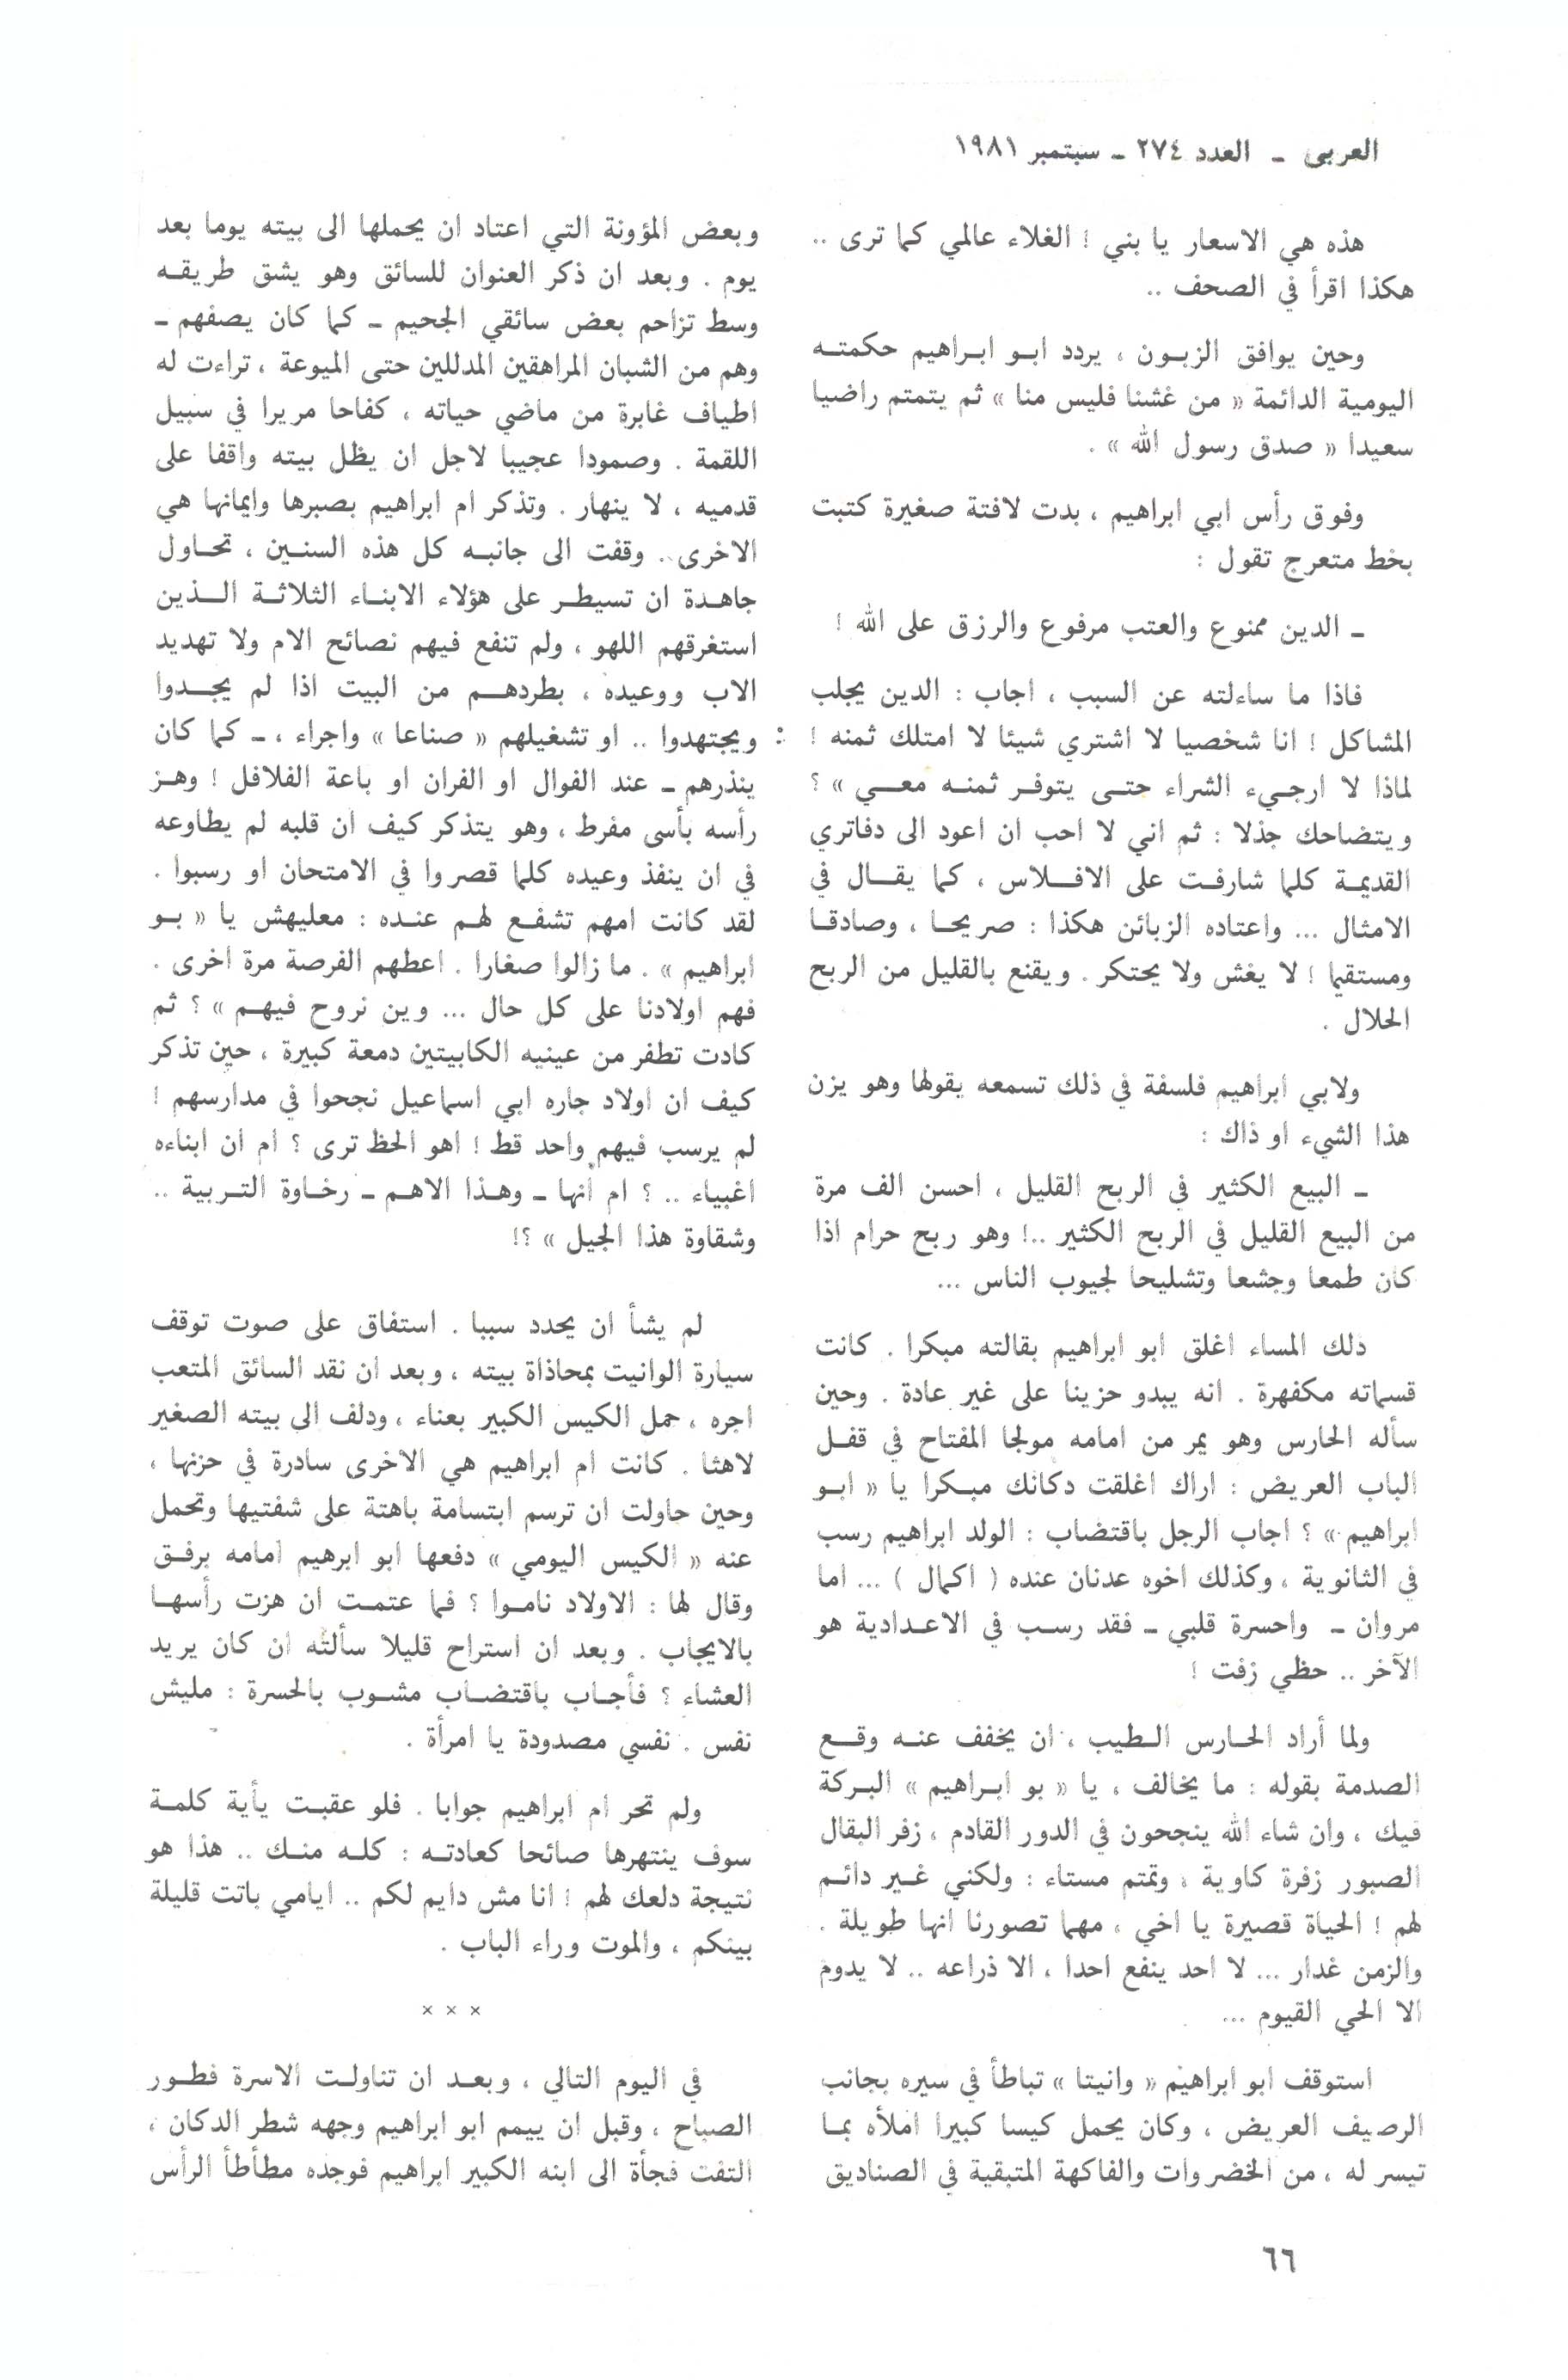 العربي ـ العدد ٢٧٤ ـ سبتمبر ١٩٨١
هذه هي الاسعار يا بني ! الغلاء عالمي كما ترى ..
هكذا اقرأ في الصحف ..
وحين يوافق الزبون ، يردد ابو ابراهيم حكمته
اليومية الدائمة « من غشنا فليس منا » ثم يتمتم راضيا
سعيدا « صدق رسول الله » .
وفوق رأس ابي ابراهيم ، بدت لافتة صغيرة كتبت
بخط متعرج تقول :
ـ الدين ممنوع والعتب مرفوع والرزق على الله !
فاذا ما ساءلته عن السبب ، اجاب : الدين يجلب
المشاكل ! انا شخصيا لا اشتري شيئا لا امتلك ثمنه !
لماذا لا ارجيء الشراء حتى يتوفر ثمنه معي » ؟
ويتضاحك جذلا : ثم اني لا احب ان اعود الى دفاتري
القديمة كلما شارفت على الافلاس ، كما يقال في
الامثال ... واعتاده الزبائن هكذا : صريحا ، وصادقا
ومستقيما ! لا يغش ولا يحتكر . ويقنع بالقليل من الربح
الحلال .
ولابي ابراهيم فلسفة في ذلك تسمعه يقولها وهو يزن
هذا الشيء او ذاك :
ـ البيع الكثير في الربح القليل ، احسن الف مرة
من البيع القليل في الربح الكثير ..! وهو ربح حرام اذا
كان طمعا وجشعا وتشليحا لجيوب الناس ...
ذلك المساء اغلق ابو ابراهيم بقالته مبكرا . كانت
قسماته مكفهرة . انه يبدو حزينا على غير عادة . وحين
سأله الحارس وهو يمر من امامه مولجا المفتاح في قفل
الباب العريض : اراك اغلقت دكانك مبكرا يا « ابو
ابراهيم » ؟ اجاب الرجل باقتضاب : الولد ابراهيم رسب
في الثانوية ، وكذلك اخوه عدنان عنده ( اكمال ) ... اما
مروان ـ واحسرة قلبي ـ فقد رسب في الاعدادية هو
الآخر .. حظي زفت !
ولما أراد الحارس الطيب ، ان يخفف عنه وقع
الصدمة بقوله : ما يخالف ، يا « بو ابراهيم » البركة
فيك ، وان شاء الله ينجحون في الدور القادم ، زفر البقال
الصبور زفرة كاوية ، وتمتم مستاء : ولكني غير دائم
لهم ! الحياة قصيرة يا اخي ، مهما تصورنا انها طويلة .
والزمن غدار ... لا احد ينفع احدا ، الا ذراعه .. لا يدوم
الا الحي القيوم ...
استوقف ابو ابراهيم « وانيتا » تباطأ في سيره بجانب
الرصيف العريض ، وكان يحمل كيسا كبيرا املأه بما
تيسر له ، من الخضروات والفاكهة المتبقية في الصناديق
وبعض المؤونة التي اعتاد ان يحملها الى بيته يوما بعد
يوم . وبعد ان ذكر العنوان للسائق وهو يشق طريقه
وسط تزاحم بعض سائقي الجحيم ـ كما كان يصفهم ـ
وهم من الشبان المراهقين المدللين حتى الميوعة ، تراءت له
اطياف غابرة من ماضي حياته ، كفاحا مريرا في سبيل
اللقمة . وصمودا عجيبا لاجل ان يظل بيته واقفا على
قدميه ، لا ينهار . وتذكر ام ابراهيم بصبرها وايمانها هي
الاخرى . وقفت الى جانبه كل هذه السنين ، تحاول
جاهدة ان تسيطر على هؤلاء الابناء الثلاثة الذين
استغرقهم اللهو ، ولم تنفع فيهم نصائح الام ولا تهديد
الاب ووعيده ، بطردهم من البيت اذا لم يجدوا
ويجتهدوا .. او تشغيلهم « صناعا » واجراء ، ـ كما كان
ينذرهم ـ عند الفوال او الفران او باعة الفلافل ! وهز
رأسه بأسى مفرط ، وهو يتذكر كيف ان قلبه لم يطاوعه
في ان ينفذ وعيده كلما قصروا في الامتحان او رسبوا .
لقد كانت امهم تشفع لهم عنده : معليهش يا « بو
ابراهيم » . ما زالوا صغارا . اعطهم الفرصة مرة اخرى .
فهم اولادنا على كل حال ... وين نروح فيهم » ؟ ثم
كادت تطفر من عينيه الكابيتين دمعة كبيرة ، حين تذكر
كيف ان اولاد جاره ابي اسماعيل نجحوا في مدارسهم !
لم يرسب فيهم واحد قط ! اهو الحظ ترى ؟ ام ان ابناءه
اغبياء .. ؟ ام أنها ـ وهذا الاهم ـ رخاوة التربية ..
وشقاوة هذا الجيل » ؟!
لم يشأ ان يحدد سببا . استفاق على صوت توقف
سيارة الوانيت بمحاذاة بيته ، وبعد ان نقد السائق المتعب
اجره ، حمل الكيس الكبير بعناء ، ودلف الى بيته الصغير
لاهثا . كانت ام ابراهيم هي الاخرى سادرة في حزنها ،
وحين حاولت ان ترسم ابتسامة باهتة على شفتيها وتحمل
عنه « الكيس اليومي » دفعها ابو ابرهيم امامه برفق
وقال لها : الاولاد ناموا ؟ فما عتمت ان هزت رأسها
بالايجاب . وبعد ان استراح قليلا سألته ان كان يريد
العشاء ؟ فأجاب باقتضاب مشوب بالحسرة : مليش
نفس . نفسي مصدودة يا امرأة .
ولم تحر ام ابراهيم جوابا . فلو عقبت يأية كلمة
سوف ينتهرها صائحا كعادته : كله منك .. هذا هو
نتيجة دلعك لهم ! انا مش دايم لكم .. ايامي باتت قليلة
بينكم ، والموت وراء الباب .
× × ×
في اليوم التالي ، وبعد ان تناولت الاسرة فطور
الصباح ، وقبل ان ييمم ابو ابراهيم وجهه شطر الدكان ،
التفت فجأة الى ابنه الكبير ابراهيم فوجده مطأطأ الرأس
٦٦